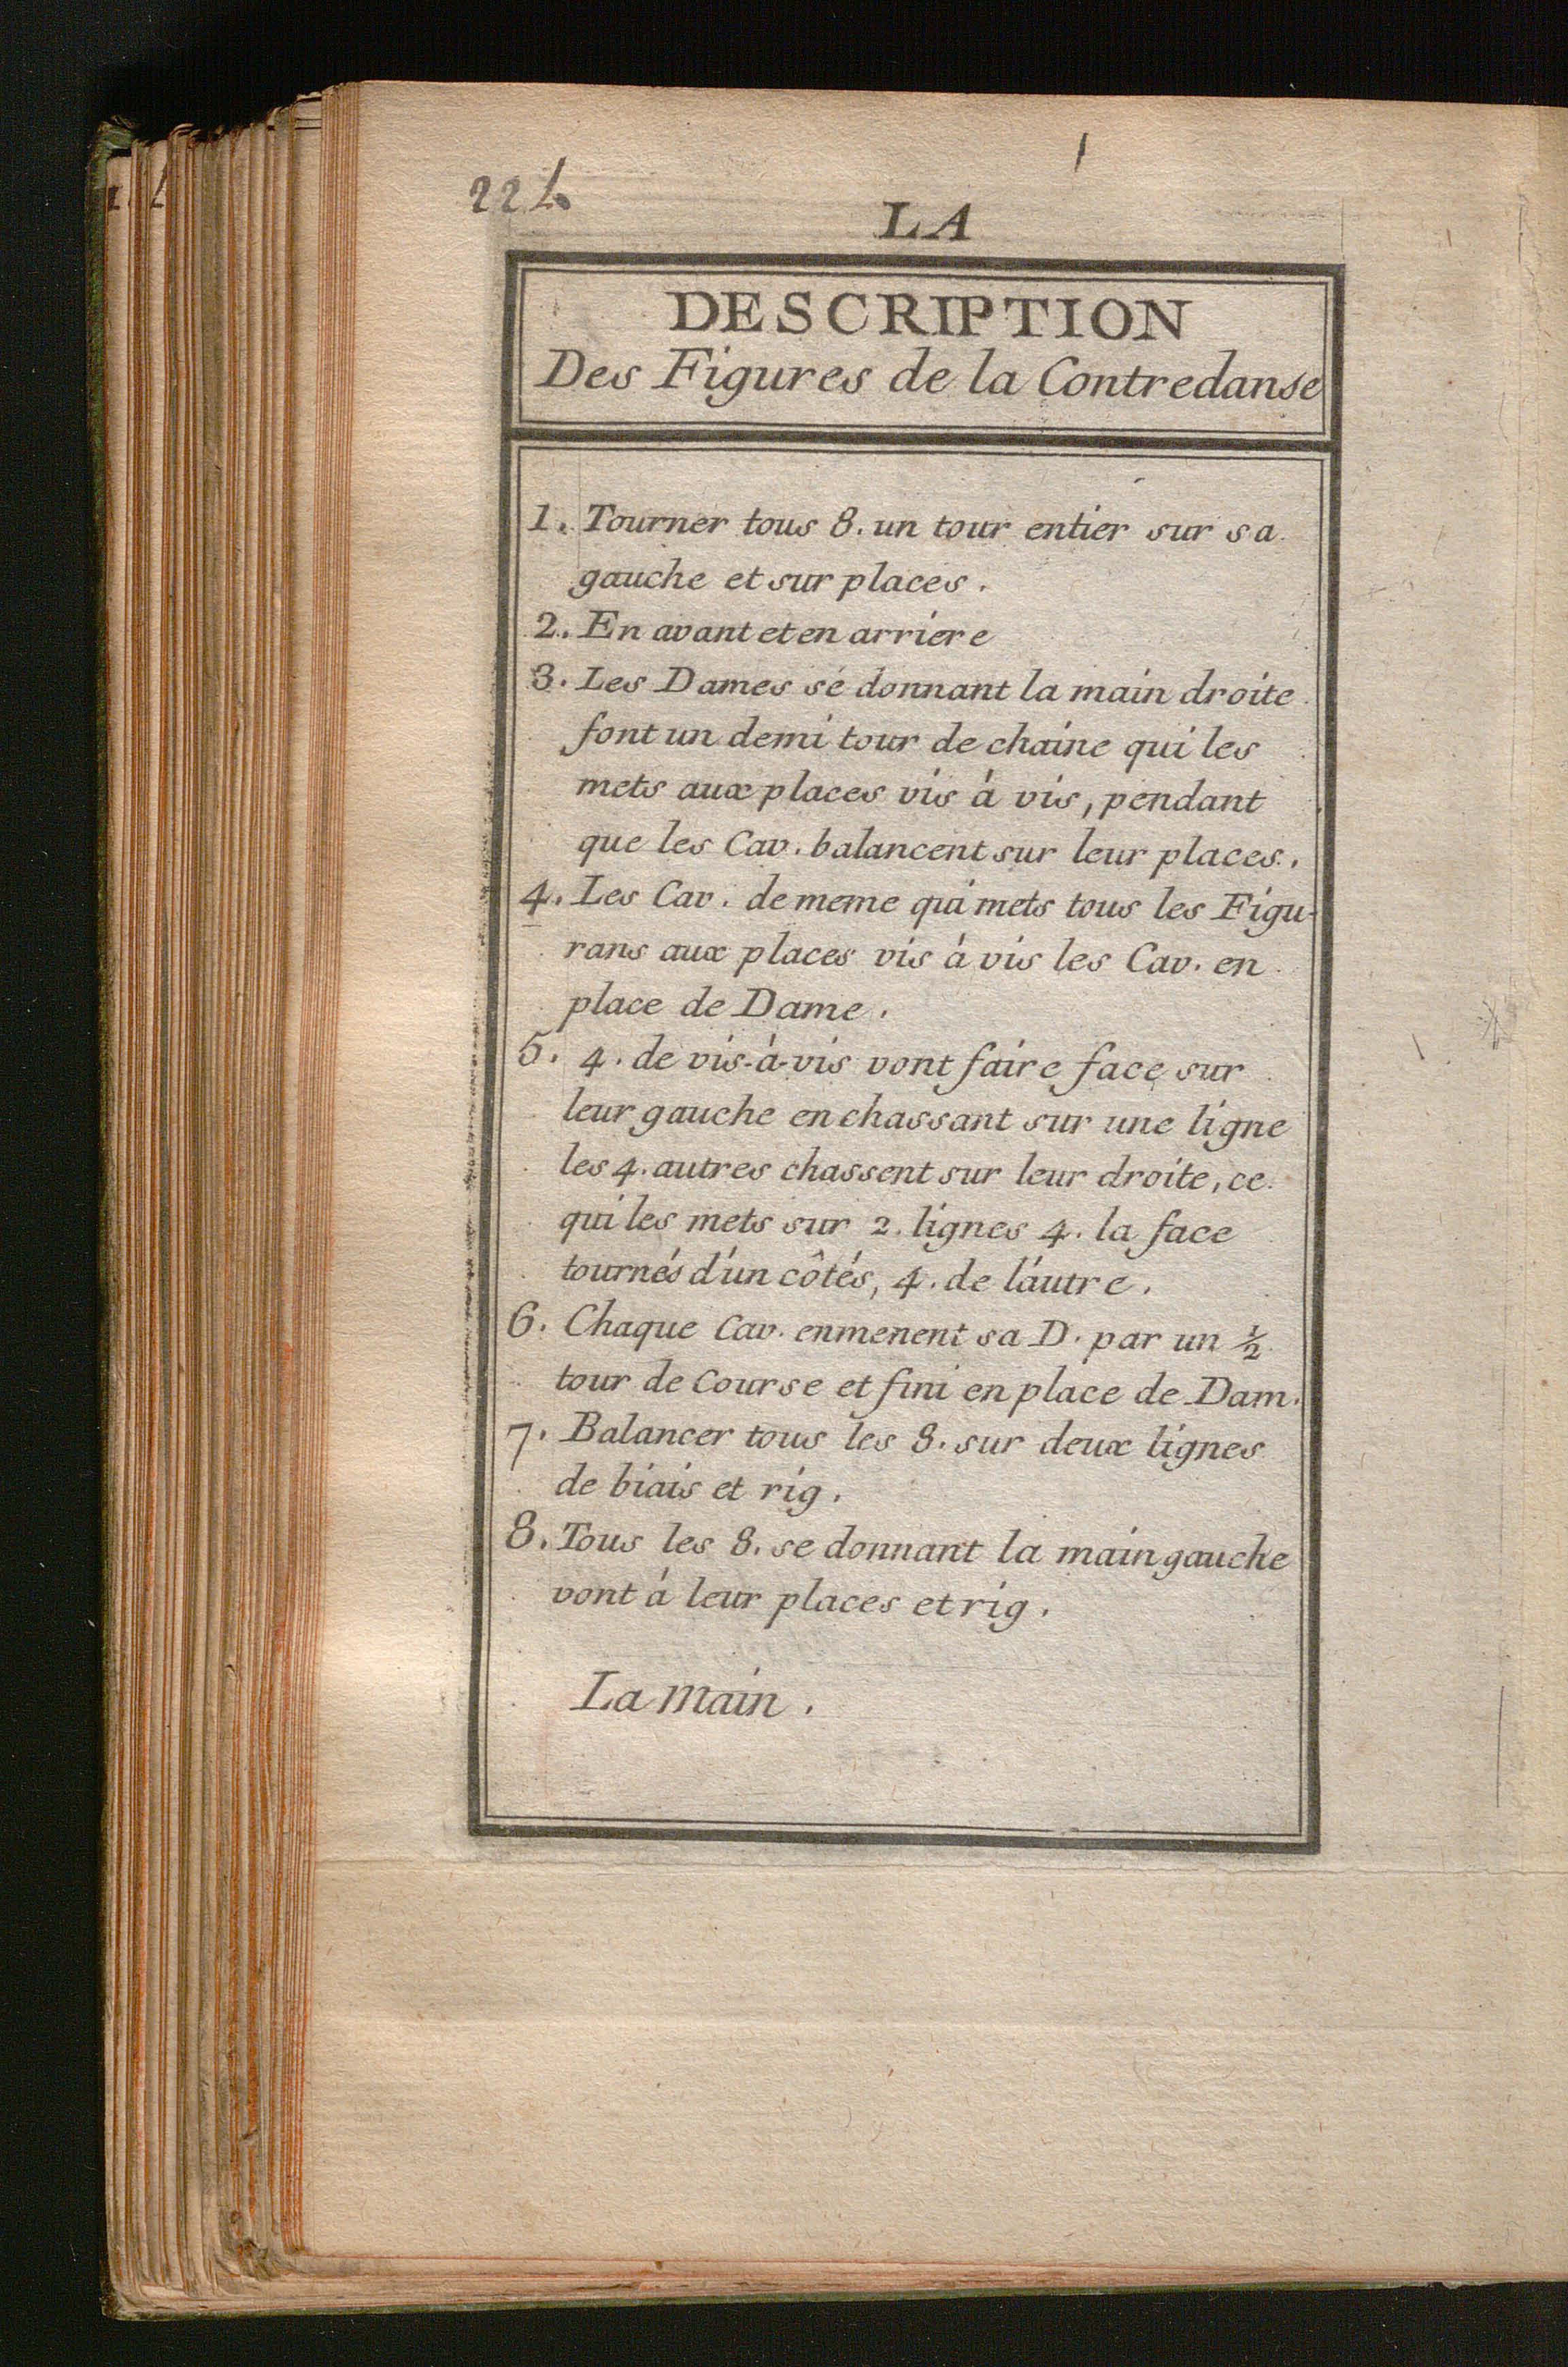 224
LA
DESCRIPTION
Des Figures de la Contredanse
1. Tourner tous 8. un tour entier sur sa
gauche et sur places.
2. En avant et en arriere
3. Les Dames se donnant la main droite
font un demi tour de chaine qui les
mets aux places vis à vis, pendant
que les Cav. balancent sur leur places.
4. Les Cav. de meme qui mets tous les Figu-
rans aux places vis à vis les Cav. en
place de Dame.
5. 4. de vis-à-vis vont faire face sur
leur gauche en chassant sur une ligne
les 4. autres chassent sur leur droite, ce
qui les mets sur 2. lignes 4. la face
tournés d'un côtés, 4. de l'autre.
6. Chaque Cav. enmenent sa D. par un ½
tour de Course et fini en place de Dam.
7. Balancer tous les 8. sur deux lignes
de biais et rig.
8. Tous les 8. se donnant la main gauche
vont à leur places et rig.
La Main.